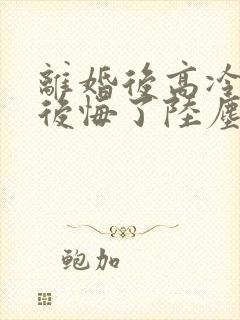 離婚後高冷
後悔了陸塵
鮑加